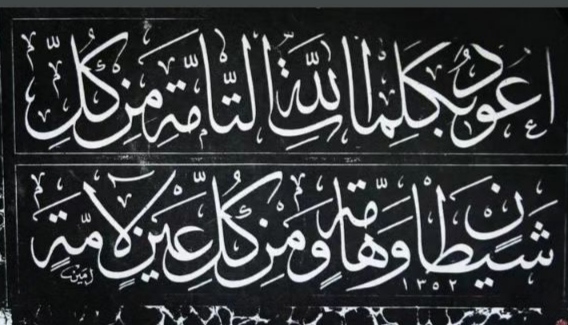 اعوذ بكلمات الله التامة من كل
شيطان وهامة ومن كل عين لامة
١٣٥٢